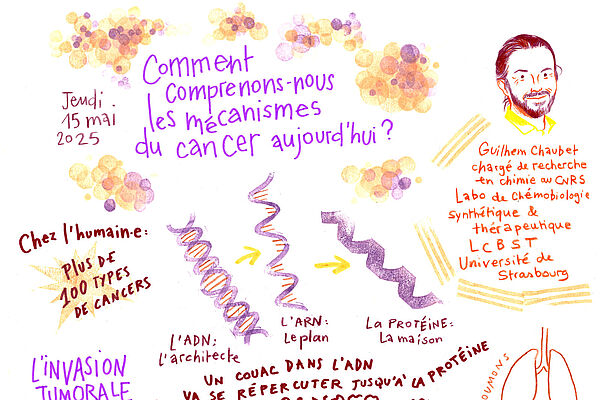 Comment
comprenons-nous
les mécanismes
du cancer aujourd'hui ?
Jeudi
15 mai
2025
Guilhem Chaubet
chargé de recherche
en chimie au CNRS
Labo de Chémobiologie
synthétique &
thérapeutique
LCBST
Université de
Strasbourg
Chez l'humain·e :
PLUS DE
100 TYPES
DE CANCERS
L'ADN :
l'architecte
L'ARN :
Le plan
La PROTÉINE :
La maison
L'INVASION
TUMORALE
UN COUAC DANS L'ADN
VA SE RÉPERCUTER JUSQU'À LA PROTÉINE
POUMONS